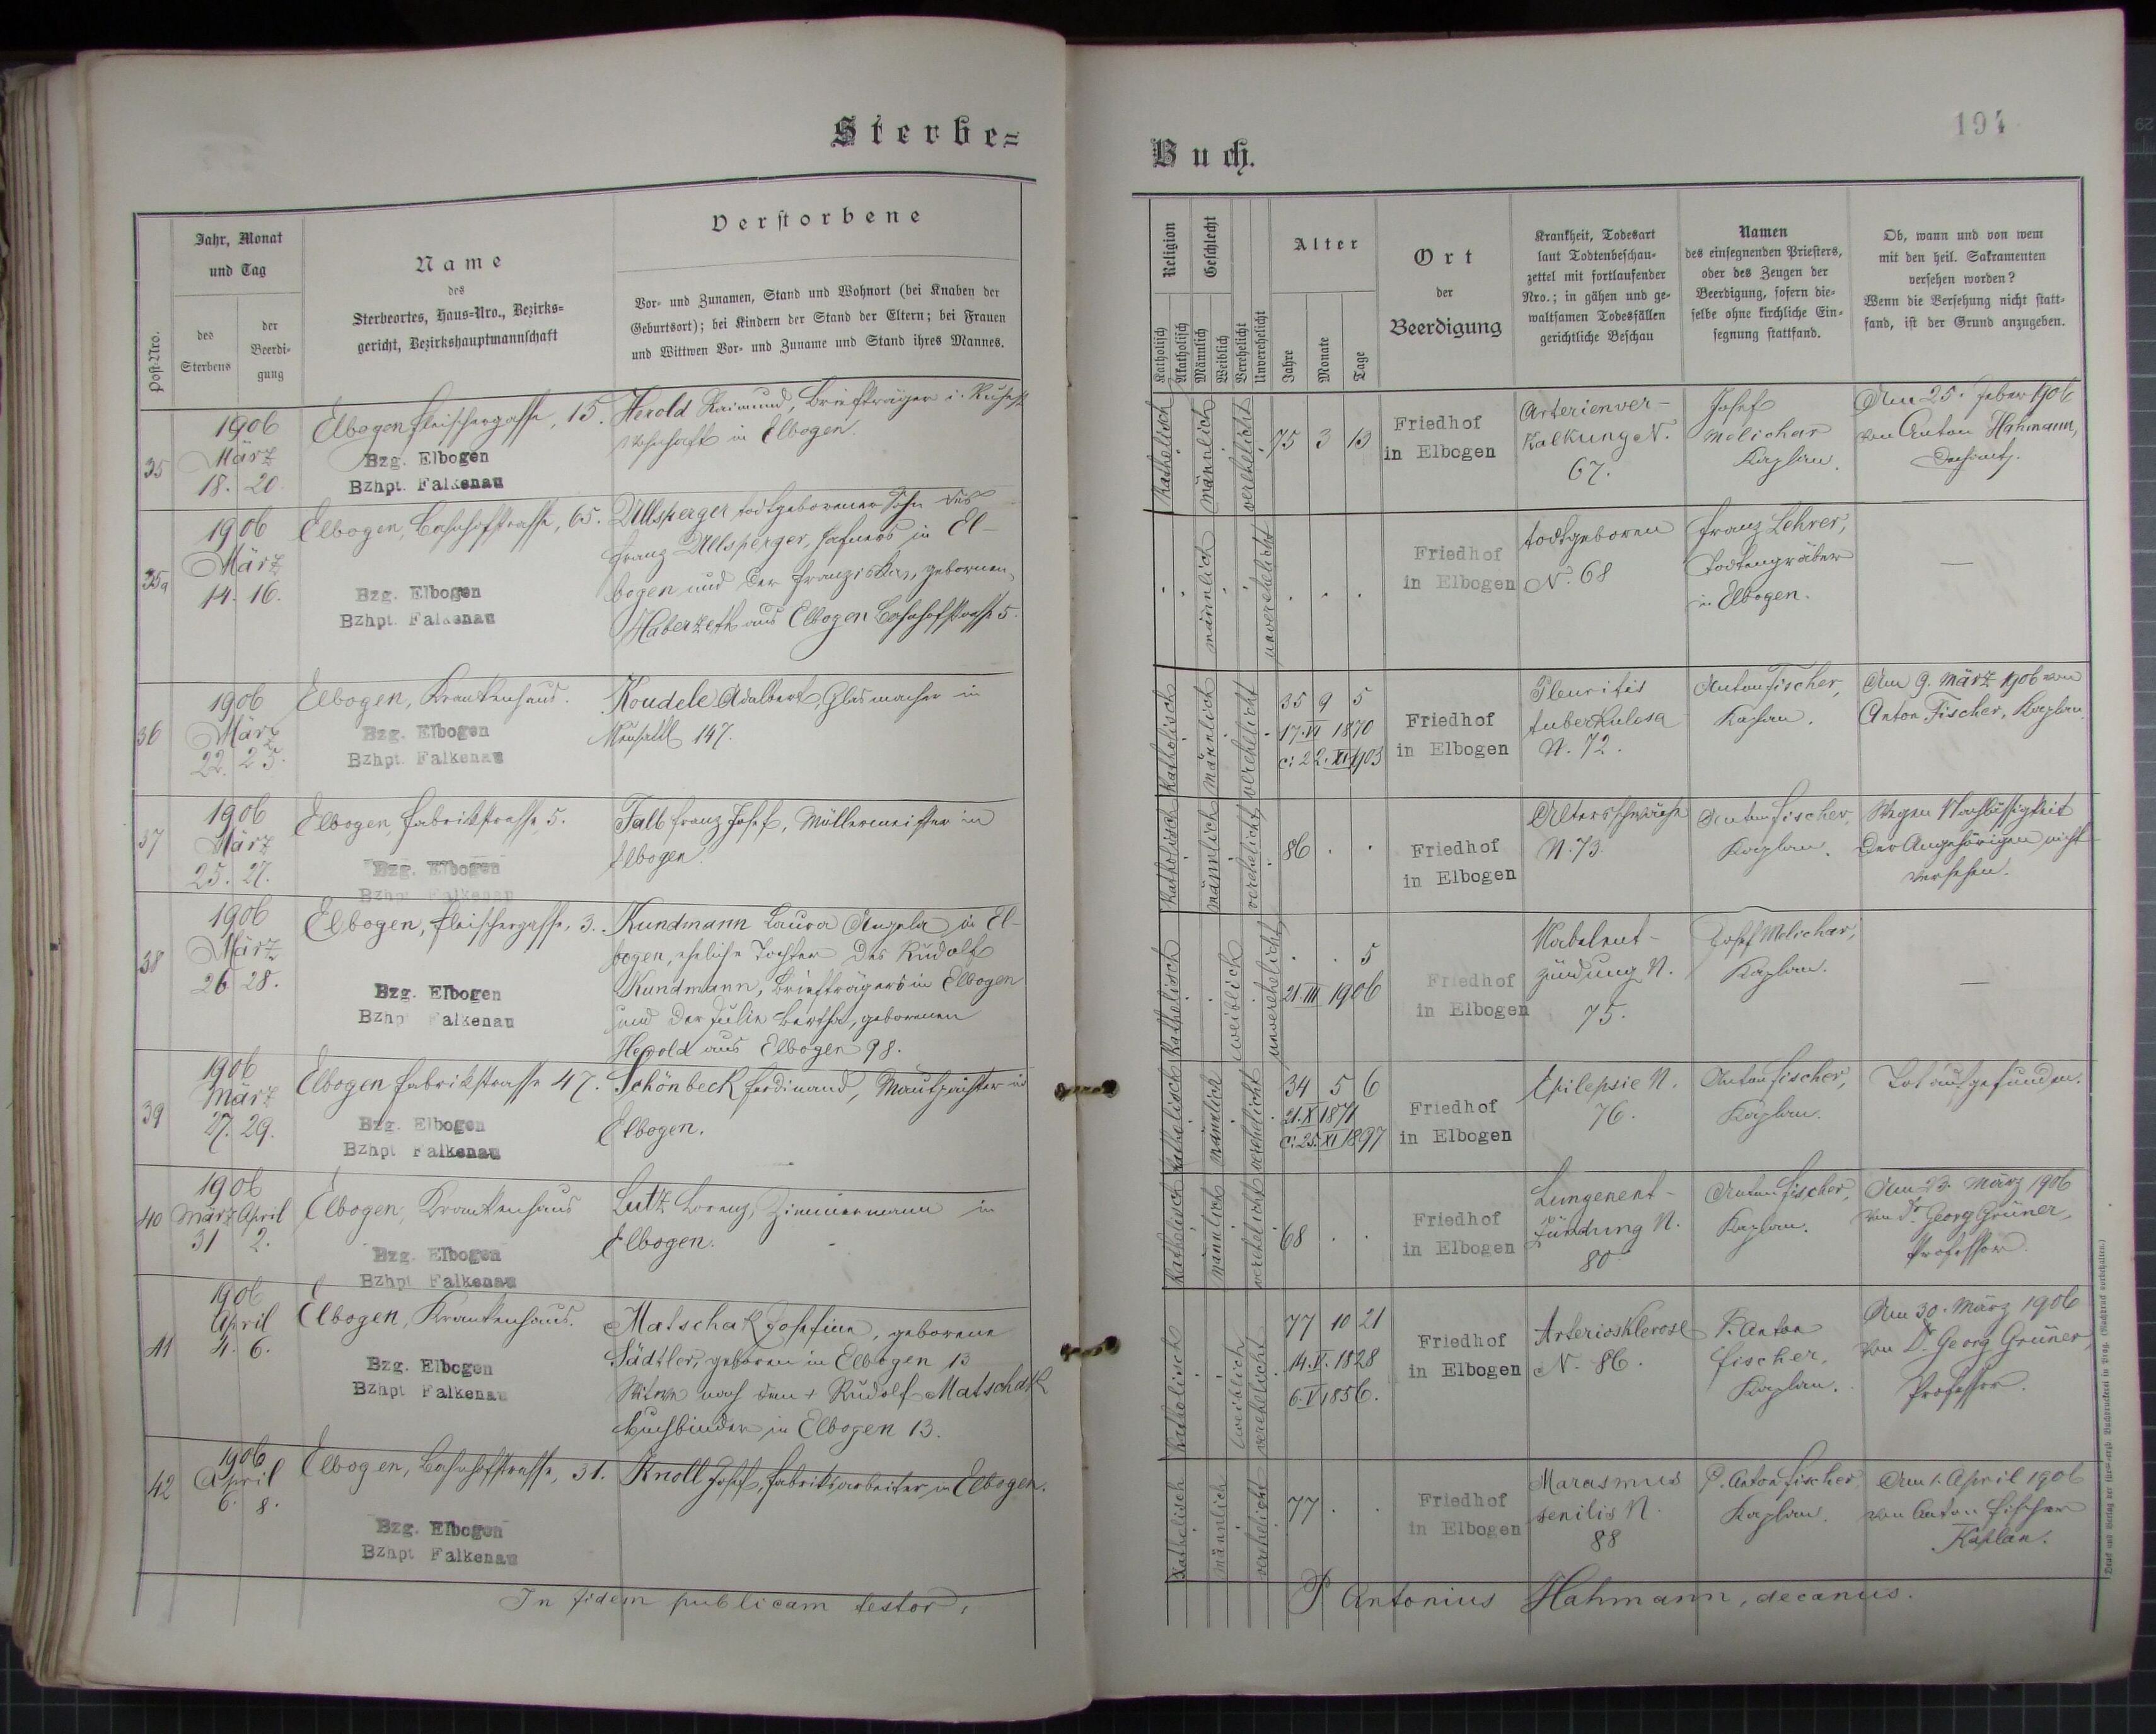 Sterbe=
Jahr, Monat
und Tag
Post-Nro.
des
Sterbens
der
Beerdi-
gung
Name
des
Sterbeortes, Haus=Nro., Bezirks=
gericht, Bezirkshauptmannschaft
Verstorbene
Vor= und Zunamen, Stand und Wohnort (bei Knaben der
Geburtsort); bei Kindern der Stand der Eltern; bei Frauen
und Wittwen Vor= und Zuname und Stand ihres Mannes.
35
1906
März
18. 20.
Elbogen Fleischergasse, 15.
Bzg. Elbogen
Bzhpt. Falkenau
Herold Raimund, Briefträger i. Ruhest
wohnhaft in Elbogen.
35a
1906
März
14. 16.
Elbogen, Bahnhofstrasse, 65.
Bzg. Elbogen
Bzhpt. Falkenau
Ullsperger todtgeborener Sohn des
Franz Ullsperger, Hafners in El-
bogen und der Franziska, gebornen
Haberzeth aus Elbogen Bahnhofstrasse 5.
36
1906
März
22. 25.
Elbogen, Krankenhaus.
Bzg. Elbogen
Bzhpt. Falkenau
Koudele Adalbert, Glasmacher in
Neusattl 147.
37
1906
März
25. 27.
Elbogen, Fabrikstrasse, 5.
Bzg. Elbogen
Bzhpt Falkenau
Falb Franz Josef, Müllermeister in
Elbogen.
38
1906
März
26 28.
Elbogen, Fleischergasse, 3.
Bzg. Elbogen
Bzhpt Falkenau
Kundmann Laura Angela in El-
bogen, eheliche Tochter des Rudolf
Kundmann, Briefträgers in Elbogen
und der Julie Bertha, geborenen
Herold aus Elbogen 98.
39
1906
März
27. 29.
Elbogen Fabrikstrasse 47.
Bzg. Elbogen
Bzhpt Falkenau
Schönbeck Ferdinand, in
Elbogen.
40
1906
März April
31 2.
Elbogen, Krankenhaus
Bzg. Elbogen
Bzhpt Falkenau
Lutz Lorenz, Zimmermann in
Elbogen.
41
1906
April
4. 6.
Elbogen, Krankenhaus.
Bzg. Elbogen
Bzhpt Falkenau
Matschak Josefine, geborene
geboren in Elbogen 13
Witwe nach dem + Rudolf Matschak
Buchbinder in Elbogen 13.
42
1906
April
6. 8.
Elbogen, Bahnhofstrasse, 31.
Bzg. Elbogen
Bzhpt Falkenau
Knoll Josef, Fabriksarbeiter in Elbogen.
In fidem publicam testor,
194
Buch.
Religion
Katholisch
Akatholisch
Geschlecht
Männlich
Weiblich
Verehelicht
Unverehelicht
Alter
Jahre
Monate
Tage
Ort
der
Beerdigung
Krankheit, Todesart
laut Todtenbeschau=
zettel mit fortlaufender
Nro.; in gähen und ge=
waltsamen Todesfällen
gerichtliche Beschau
Namen
des einsegnenden Priesters,
oder des Zeugen der
Beerdigung, sofern die=
selbe ohne kirchliche Ein=
segnung stattfand.
Ob, wann und von wem
mit den heil. Sakramenten
versehen worden?
Wenn die Versehung nicht statt=
fand, ist der Grund anzugeben.
Katholisch
männlich
verehelicht
75 3 13
Friedhof
in Elbogen
Arterienver-
kalkung N.
67.
Josef
Melichar
Kaplan.
Am 25. Feber 1906
von Anton Hahmann,
Dechant.
männlich
unverehelicht
Friedhof
in Elbogen
todtgeboren
N. 68
Franz Lehrer,
Todtengräber
in Elbogen.
—
Katholisch
männlich
verehelicht
35 9 5
17. VI 1870
c: 22. XI 1903
Friedhof
in Elbogen
Pleuritis
tuberkulosa
N. 72.
Anton Fischer,
Kaplan.
Am 9. März 1906 von
Anton Fischer, Kaplan.
Katholisch
männlich
verehelicht
86
Friedhof
in Elbogen
Altersschwäche
N. 73
Anton Fischer,
Kaplan.
Wegen Nachlässigkeit
der Angehörigen nicht
versehen.
Katholisch
weiblich
unverehelicht
5
21. III 1906
Friedhof
in Elbogen
Nabelent-
zündung N.
75.
Josef Melichar,
Kaplan.
—
Katholisch
männlich
verehelicht
34 5 6
21. X 1871
c: 25. XI 1897
Friedhof
in Elbogen
Epilepsie N.
76.
Anton Fischer,
Kaplan.
Tot aufgefunden.
Katholisch
männlich
verehelicht
68
Friedhof
in Elbogen
Lungenent-
zündung N.
80
Anton Fischer,
Kaplan.
Am 23. März 1906
von Dr. Georg Grüner,
Professor.
Katholisch
weiblich
verehelicht
77 10 21
14. V. 1828
6. V 1856.
Friedhof
in Elbogen
Arteriosklerose
N. 86.
P. Anton
Fischer,
Kaplan.
Am 30. März 1906
von Dr. Georg Grüner,
Professor.
Katholisch
männlich
verehelicht
77
Friedhof
in Elbogen
Marasmus
senilis N.
88
P. Anton Fischer
Kaplan.
Am 1. April 1906
von Anton Fischer
Kaplan.
P Antonius Hahmann, decanus.